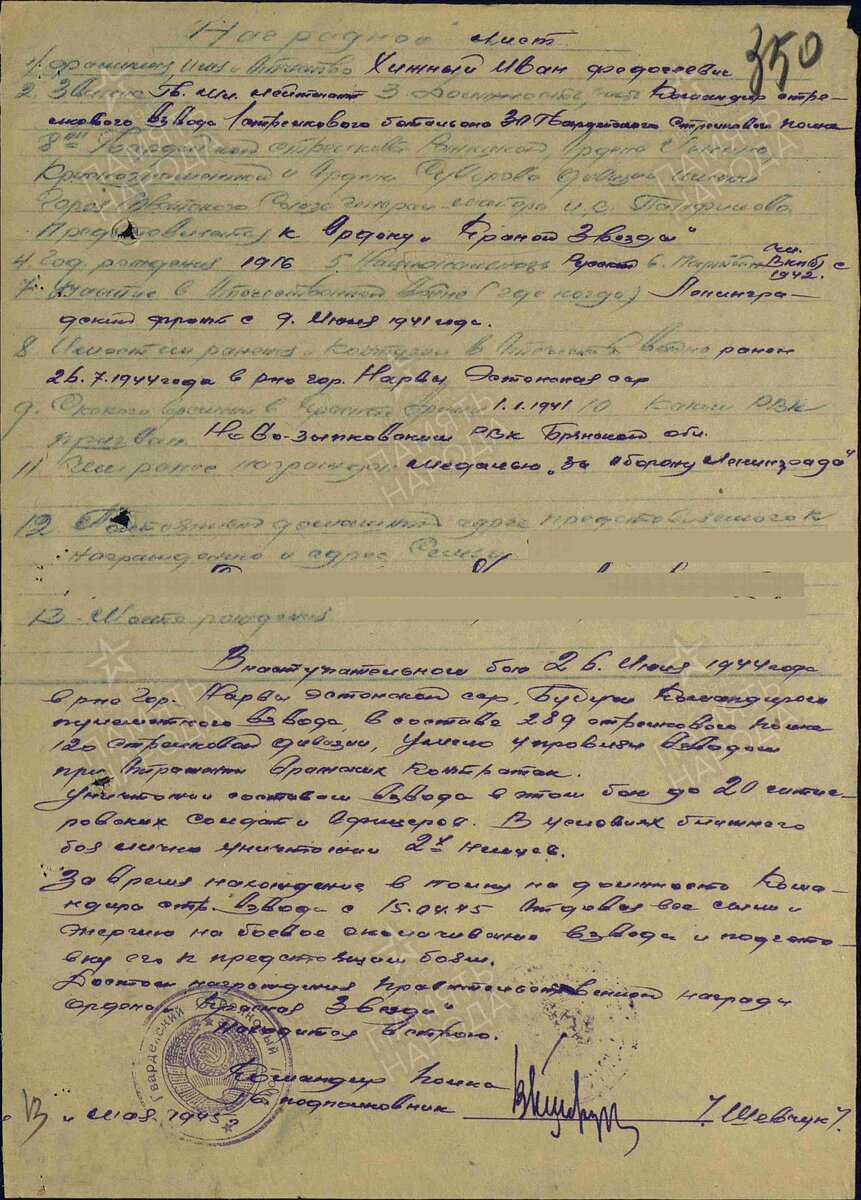 Наградной лист
350
1. Фамилия, имя и Отчество Хижный Иван Федосеевич
2. Звание Гв. мл. лейтенант 3. Должность, часть Командир стре-
лкового взвода 1 стрелкового батальона 30 Гвардейского Стрелкового полка
8ой Гвардейской стрелковой Режицкой, Ордена Ленина,
Краснознаменной и Ордена Суворова дивизии имени
Героя Советского Союза генерал-майора И.В. Панфилова.
Представляется к Ордену „Красной Звезды"
4. Год рождения 1916 5. Национальность Русский 6. Партийн. чл. ВКП(б) с 1942.
7. Участие в Отечественной войне (где когда) Ленингра-
дский фронт с 9. Июля 1941 года.
8. Имеет ли ранения и контузии в Отечеств войне ранен
26.7.1944 года в р-не гор. Нарвы Эстонская сср
9. С какого времени в Красной Армии 1.1.1941 10. Каким РВК
призван Ново-зыбковским РВК Брянской обл.
11. Чем ранее награжден медалью „За Оборону Ленинграда"
12. Постоянный домашний адрес представляемого к
награждению и адрес Семьи
13. Место рождения
В наступательном бою 26. Июля 1944 года
в р-не гор. Нарвы Эстонской сср, Будучи Командиром
пулеметного взвода, в составе 289 стрелкового полка
120 стрелковой дивизии, умело управлял взводом
при Отражении Вражеских Контратак.
Уничтожил составом взвода в этом бою до 20 гитле-
ровских солдат и Офицеров. В условиях ближнего
боя лично уничтожил 2х немцев.
За время нахождение в полку на должность Кома-
ндира стр. взвода с 15.04.45 Отдовал все силы и
энергию на боевое сколачивание взвода и подгото-
вку его к предстоящим боям.
Достоин награждения правительственной награды
ордена „Красная Звезда"
Находится в строю.
Командир полка
Гв. подполковник / Шевчук /.
"13" мая 1945 г
Гвардейский Стрелковый
ПАМЯТЬ НАРОДА